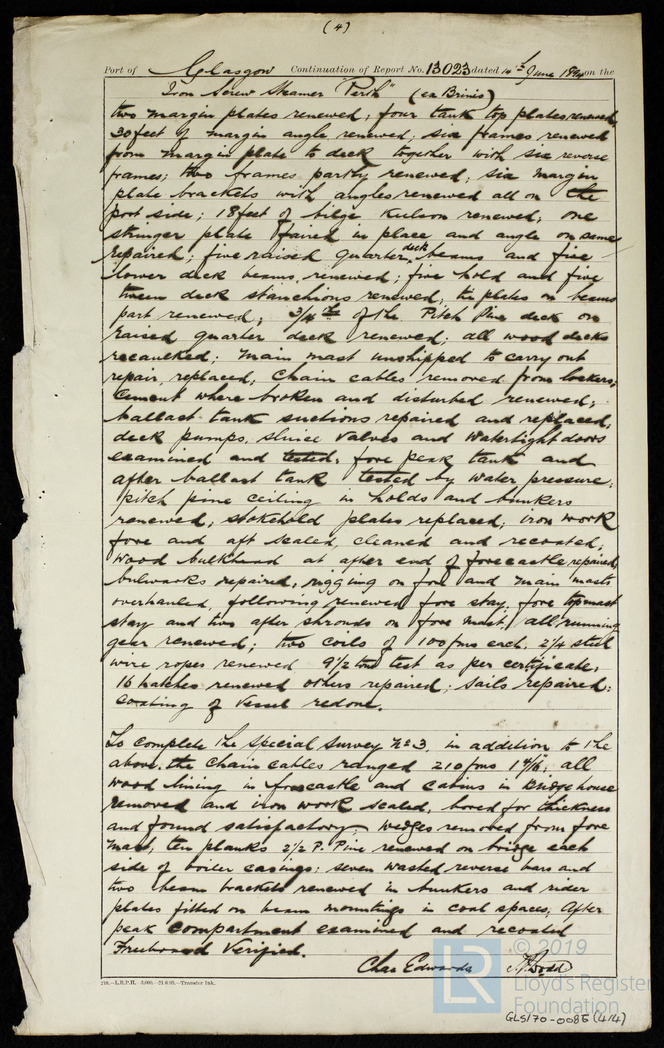 (4)
Port of Glasgow Continuation of Report No. 13023 dated 14th June on the
Iron Screw Steamer "Perth" (ex Brinio)
two margin plates renewed; four tank top plates renewed,
30 feet of margin angle renewed; six frames renewed
from margin plate to deck together with six reverse
frames; two frames partly renewed; six margin
plate brackets with angles renewed all on the
port side; 18 feet of bilge Kelson renewed; one
stringer plate faired in place and angle on same
repaired; five raised quarter deck beams and five
lower deck beams renewed; five hold and five
tween deck stanchions renewed; tie plates on beams
part renewed; 3/4ths of the Pitch Pine deck on
raised quarter deck renewed; all wood decks
recaulked; main mast unshipped to carry out
repair, replaced; Chain cables removed from lockers;
Cement where broken and disturbed renewed;
ballast tank suctions repaired and replaced;
deck pumps, sluice valves and watertight doors
examined and tested; fore peak tank and
after ballast tank tested by water pressure;
pitch pine ceiling in holds and bunkers
renewed, stokehold plates replaced; iron work
fore and aft scaled, cleaned and recoated;
wood bulkhead at after end of forecastle repaired,
bulwarks repaired; rigging on fore and main masts
overhauled, following renewed fore stay, fore topmast
stay and two after shrouds on fore mast; all running
gear renewed; two coils of 100 fms each, 2 1/4 steel
wire ropes renewed 9 1/2 tons test as per certificate;
16 hatches renewed others repaired; sails repaired;
coating of vessel redone.
To complete the Special Survey No 3, in addition to the
above, the chain cables ranged 210 fms all
wood lining in forecastle and cabins in Bridge house
removed and iron work scaled, bored for thickness
and found satisfactory; wedges removed from fore
mast; ten planks 2 1/2 P. Pine renewed on bridge each
side of boiler casings; seven wasted reverse bars and
two beam brackets renewed in bunkers and rider
plates fitted on beam mountings in coal spaces; After
peak compartment examined and recoated
Freeboard Verified.
Chas Edwards Dodd
210.—L.R.P.H. Transfer Ink.
© 2019
LR
Lloyd's Register
Foundation
GLS170-0085 (4/4)